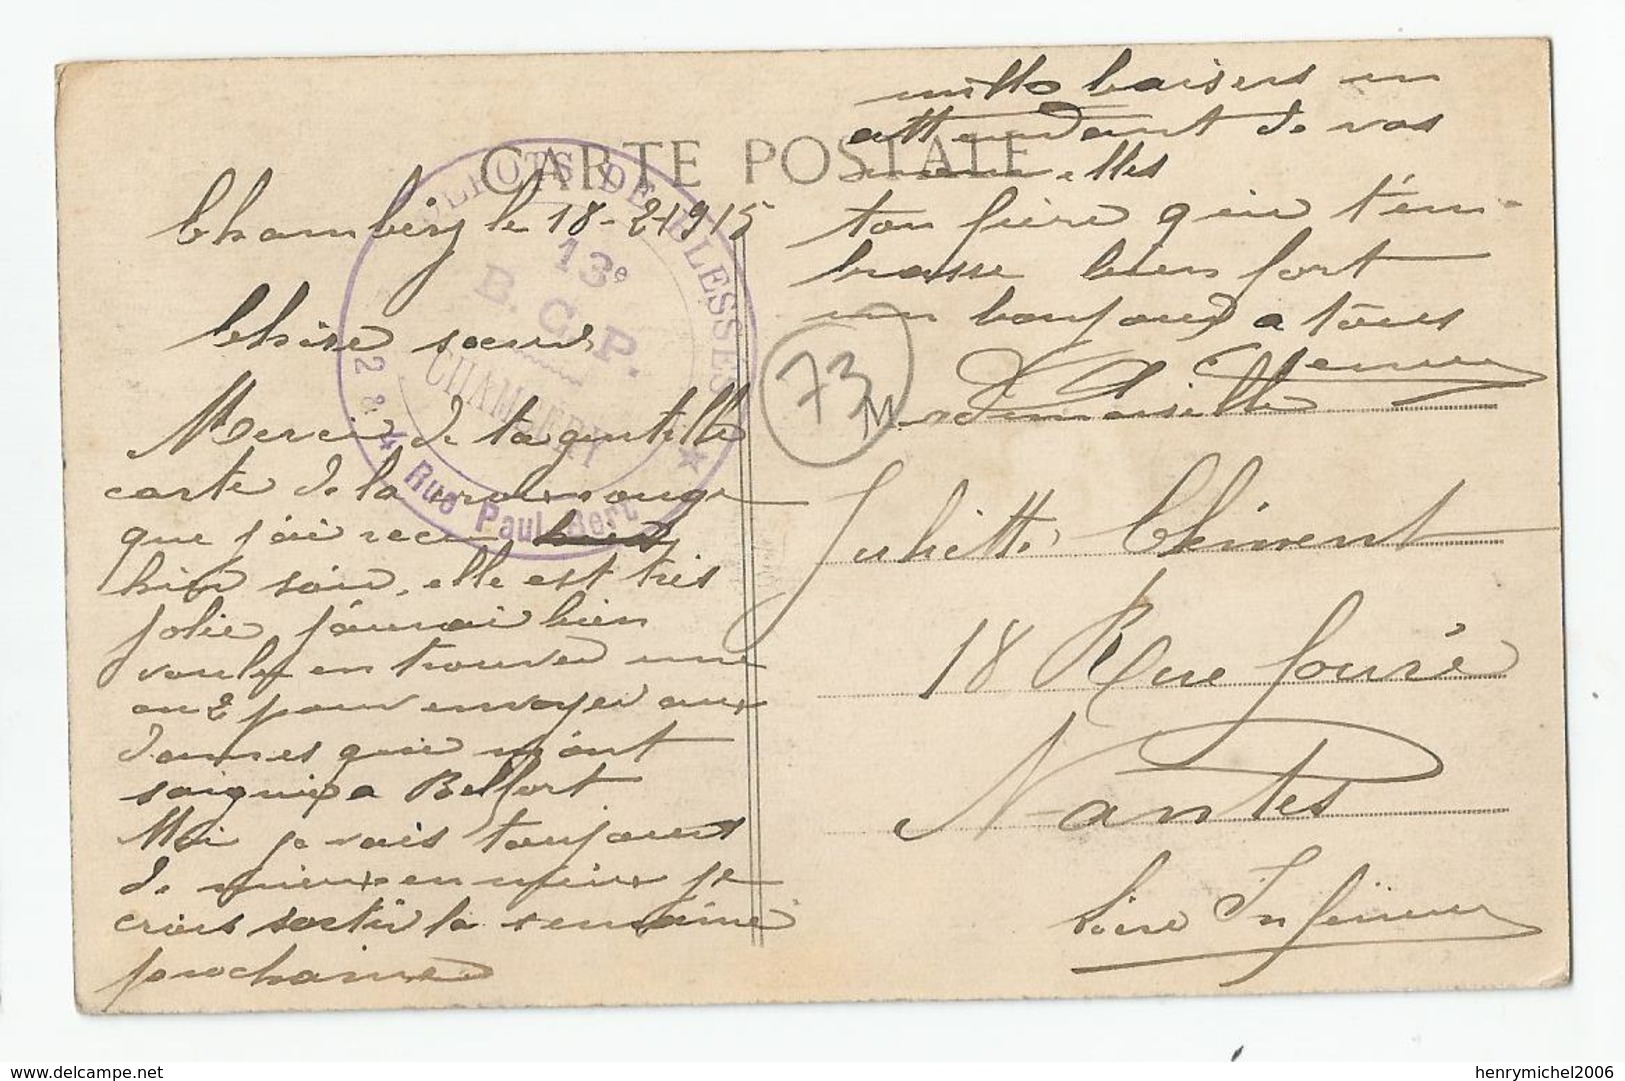 CARTE POSTALE
Chambéry le 18-2-1915
Chère sœur
Merci de ta gentille
carte de la croix rouge
que j'ai recu
hier soir. elle est très
jolie j'aurai bien
voulu en trouver une
ou 2 pour envoyer aux
dames qui m'ont
soignié a Belfort
Moi je vais toujours
de mieux en mieux je
crois sortir la semaine
prochaine
mille baisers en
attendant de vos
nouvelles
ton frère qui t'em-
brasse bien fort
un bonjour a tous
DÉPOTS DE BLESSÉS
13e
B. C. P.
CHAMBÉRY
2 & 4 Rue Paul Bert
73
Mademoiselle
Juliette Clément
18 Rue Fouré
Nantes
Loire Inférieure
delcampe.net
henrymichel2006